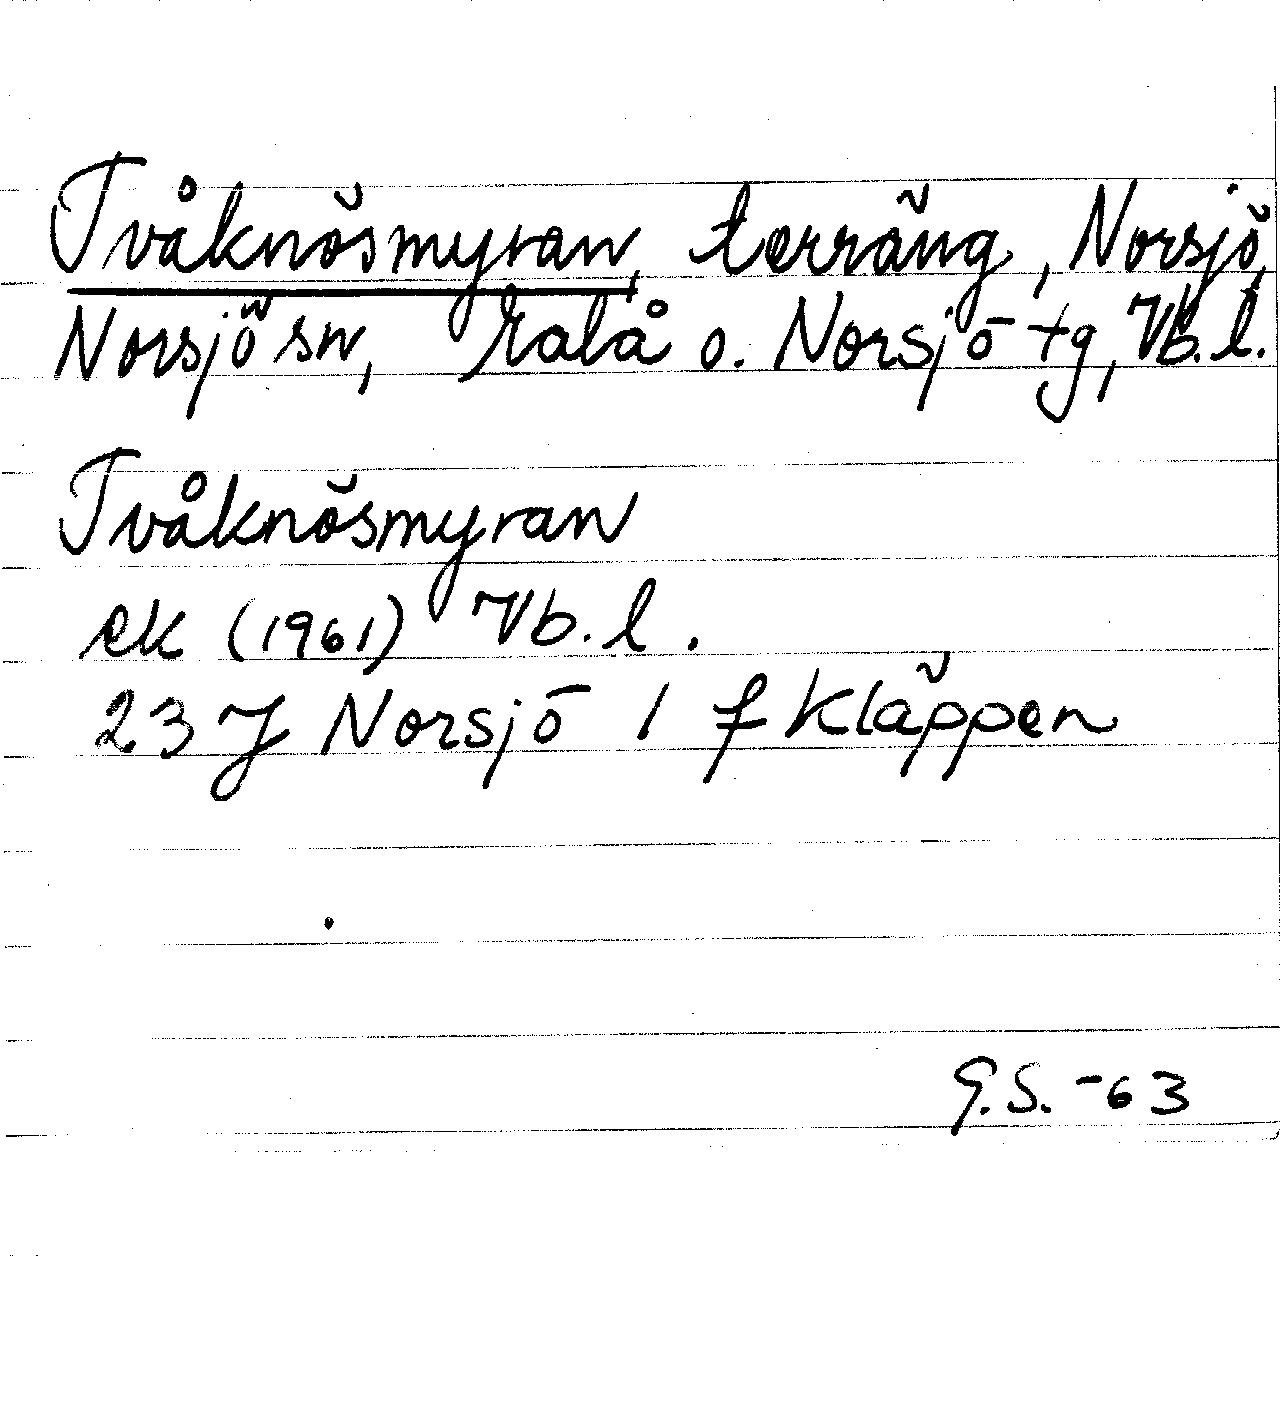 Tvåknösmyran, terräng, Norsjö,
Norsjö sn, Malå o. Norsjö tg, Vb.l.
Tvåknösmyran
ek (1961) Vb.l.
23 J Norsjö 1 f Kläppen
G.S. -63